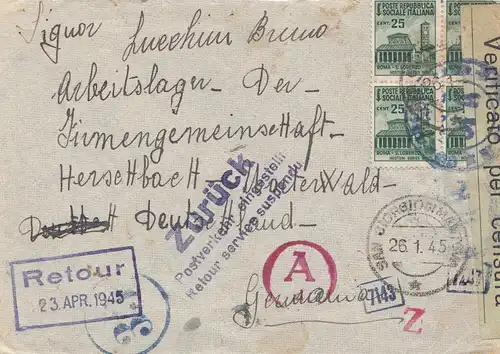 Signor Lucchini Bruno
Arbeitslager - Der -
Firmengemeinschaft -
Hersettbach - Westerwald -
Deutschland -
Germania
POSTE REPUBBLICA
SOCIALE ITALIANA
CENT. 25
ROMA - S. LORENZO
HOSTIUM RABIES
POSTE REPUBBLICA
SOCIALE ITALIANA
CENT. 25
ROMA - S. LORENZO
HOSTIUM RABIES
Verificato per censura
Zurück
Postverkehr eingestellt
Retour service suspendu
Retour
23.APR.1945
A
26.1.45
7143
Z